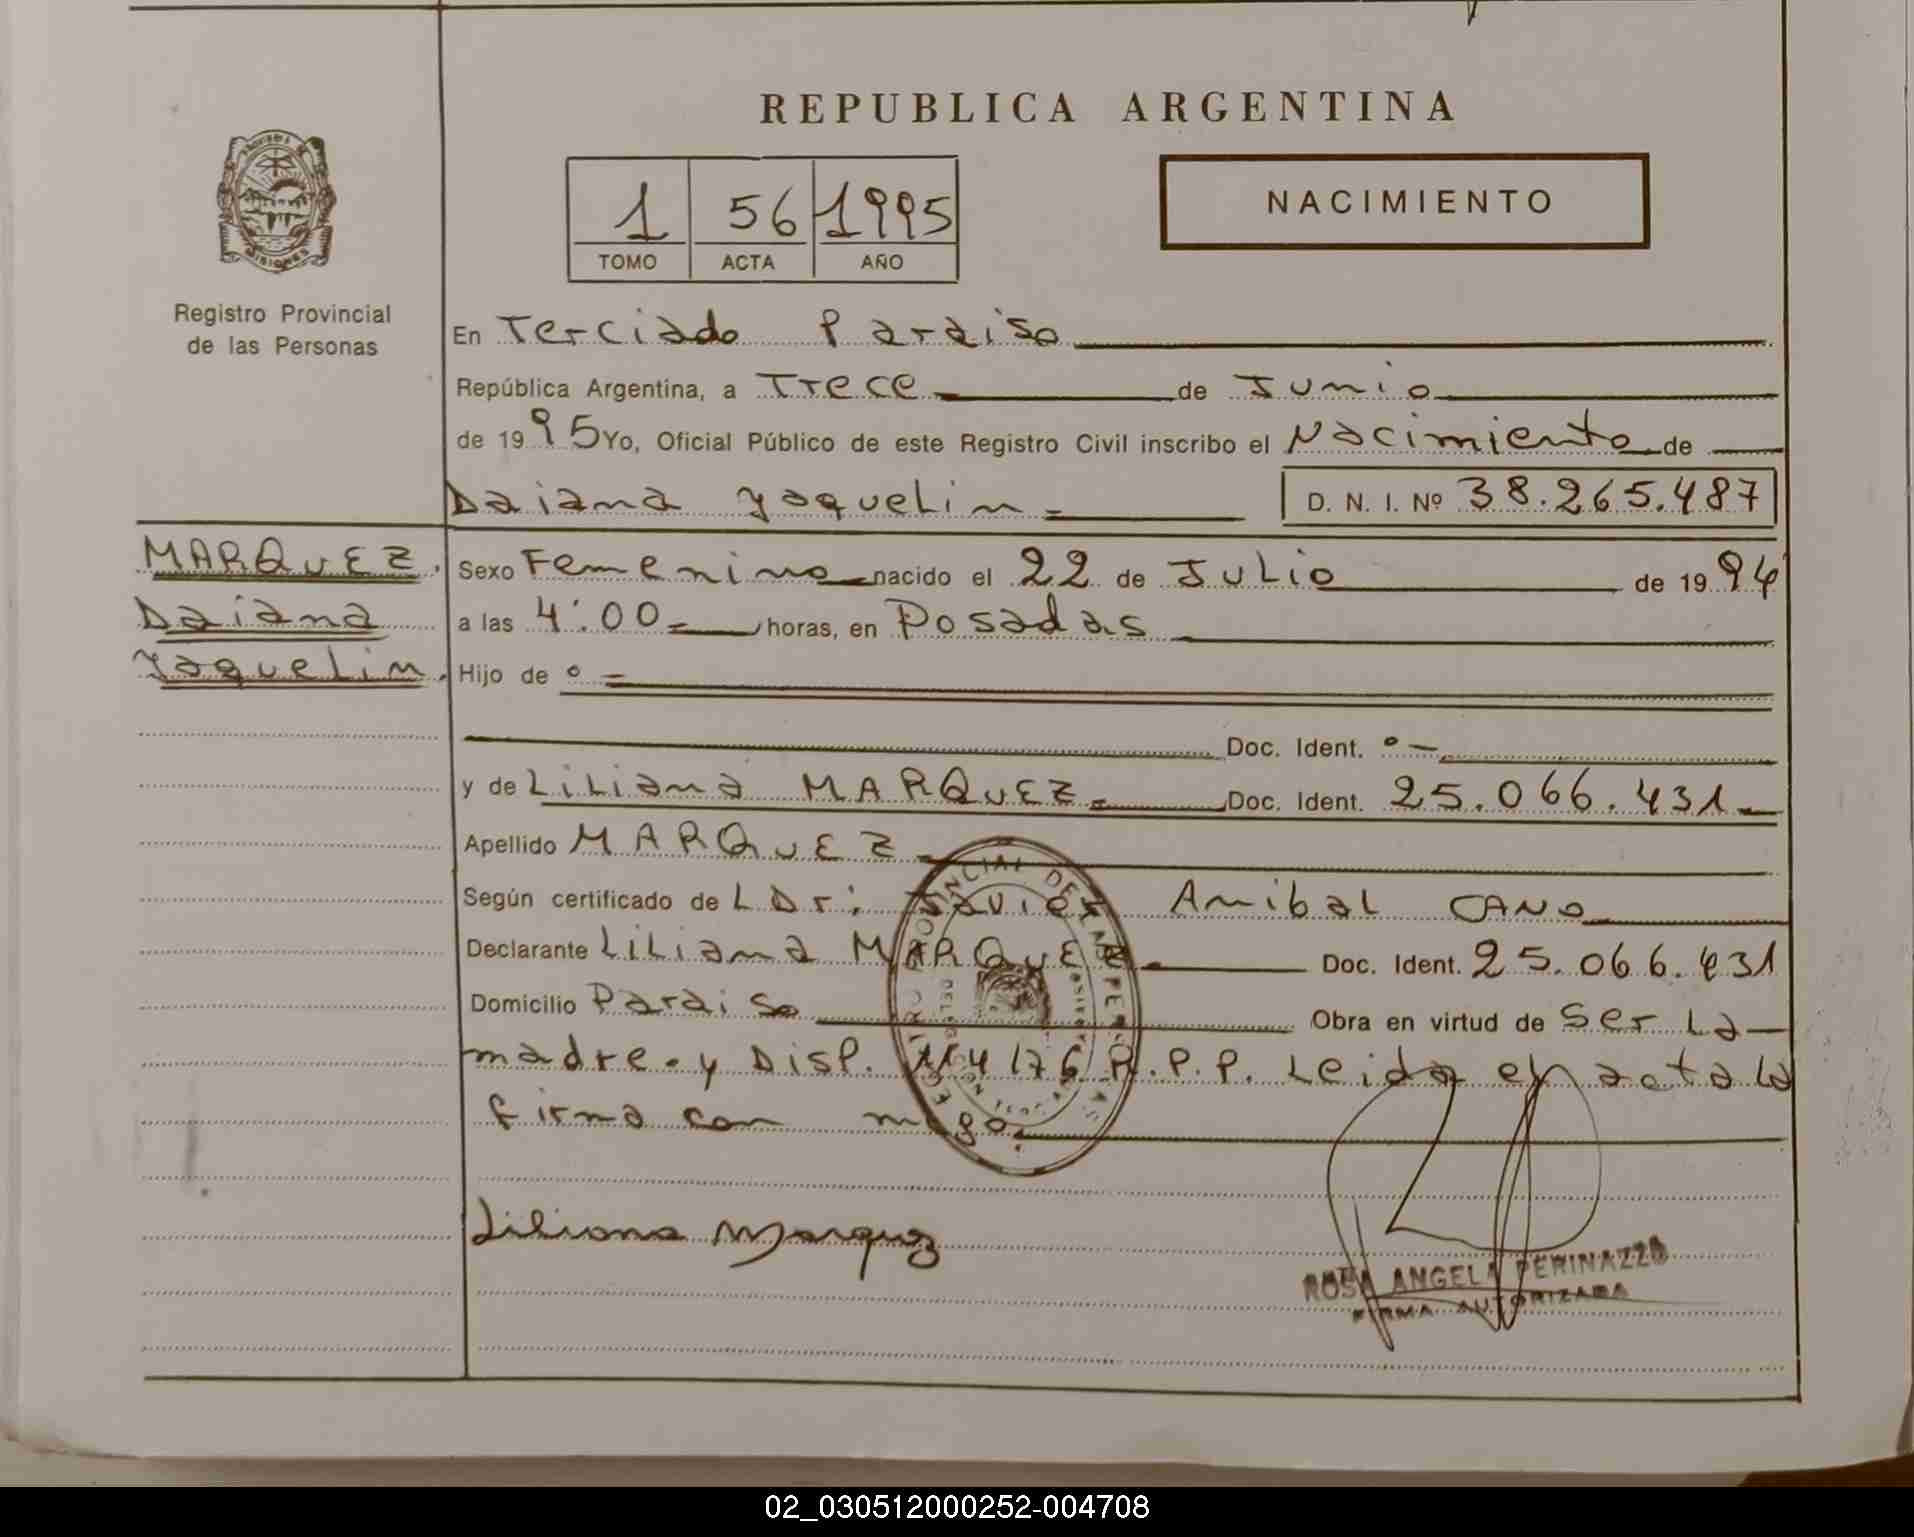 REPUBLICA ARGENTINA
1 56 1995
TOMO ACTA AÑO
NACIMIENTO
MISIONES
Registro Provincial
de las Personas
En Terciado Paraiso
República Argentina, a Trece de Junio
de 1995 Yo, Oficial Público de este Registro Civil inscribo el Nacimiento de
Daiana Yaquelin.= D. N. I. Nº 38.265.487
MARQuEZ.
Daiana
Yaquelin.
Sexo Femenino nacido el 22 de Julio de 1994
a las 4:00= horas, en Posadas
Hijo de º =
Doc. Ident. º —
y de Liliana MARQuEZ.= Doc. Ident. 25.066.431
Apellido MARQuEZ
Según certificado de L Dr: Javier Anibal CANO
Declarante Liliana MARQuEZ Doc. Ident. 25.066.431
Domicilio Paraiso Obra en virtud de Ser La
madre.y Disp. 114/76 R.P.P. Leida el acta la
firma con migo.
Liliana Marquez
ROSA ANGELA PERINAZZO
FIRMA AUTORIZADA
02_030512000252-004708